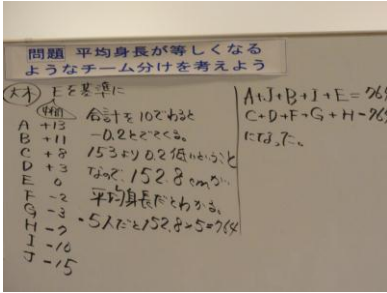 問題 平均身長が等しくなる
ようなチーム分けを考えよう
Eを基準に
A +13
B +11
C +8
D +3
E 0
F -2
G -3
H -7
I -10
J -15
合計を10でわると
-0.2とでてくる。
153より0.2低いということ
なので、152.8cmが、
平均身長だとわかる。
・5人だと152.8×5=764
A+J+B+I+E=764
C+D+F+G+H=764
になった。